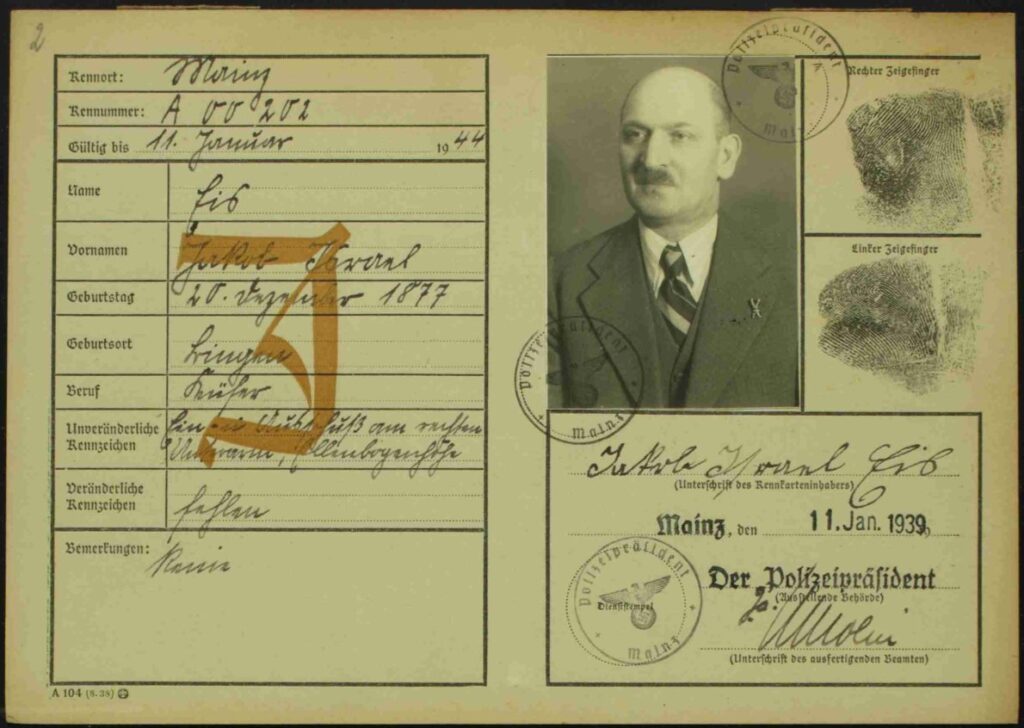 2
Kennort: Mainz
Kennummer: A 00 202
Gültig bis 11. Januar 1944
Name Eis
Vornamen Jakob Israel
Geburtstag 20. Dezember 1877
Geburtsort Bingen
Beruf Küfer
Unveränderliche Kennzeichen am rechten
Unterarm, Ellenbogenhöhe
Veränderliche Kennzeichen fehlen
Bemerkungen: Keine
A 104 (8. 38)
J
Polizeipräsident
Mainz
Rechter Zeigefinger
Linker Zeigefinger
Polizeipräsident
Mainz
Jakob Israel Eis
(Unterschrift des Kennkarteninhabers)
Mainz, den 11. Jan. 1939
Polizeipräsident
Dienststempel
Mainz
Der Polizeipräsident
(Ausstellende Behörde)
(Unterschrift des ausfertigenden Beamten)